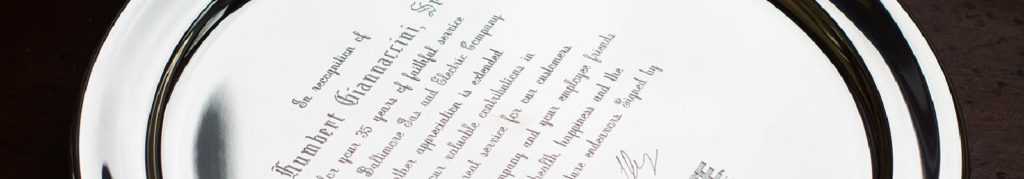 In recognition of
Humbert Giannaccini,
for your 35 years of faithful service
Baltimore Gas and Electric Company
appreciation is extended
valuable contributions in
service for our customers
and your employee friends
health, happiness and the
endeavors Signed by